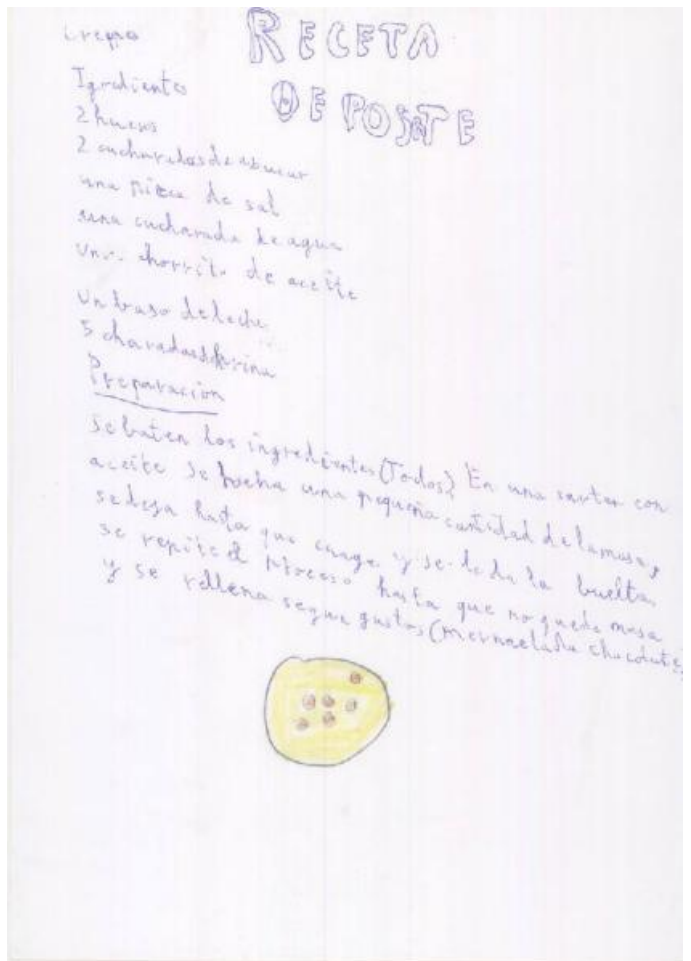 Crepes
RECETA
DE POSTE
Igredientes
2 huevos
2 cucharadas de azucar
una pizca de sal
una cucharada de agua
un chorrito de aceite
Un baso de leche
5 charadas de arina
Preparacion
se baten los ingredientes (Todos) En una sarten con
aceite se hecha una pequeña cantidad de la masa,
se deja hasta que cuage y se le da la buelta
se repite el proceso hasta que no quede masa
y se rellena segun gustos (mermelada chocolate)